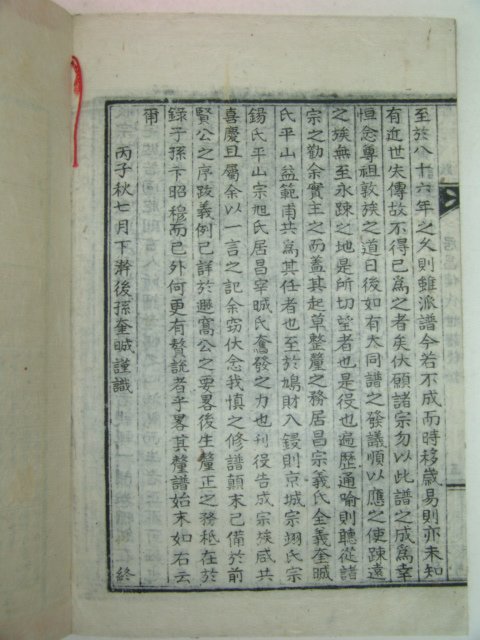 至於八十六年之久則雖派譜今若不成而時移歲易則亦未知
有近世失傳故不得已爲之者矣伏願諸宗勿以此譜之成爲幸
恒念尊祖敦族之道日後如有大同譜之發議順以應之使踈遠
之族無至永踈之地是所切望者也是役也遍歷通喩則聽從諸
宗之勤余實主之而蓋其起草整釐之務居昌宗義氏全義奎晠
氏平山益範甫共爲其任者也至於鳩財入鋟則京城宗翊氏宗
錫氏平山宗旭氏居昌宰晠氏奮發之力也刊役告成宗族咸共
喜慶且屬余以一言之記余窃伏念我愼之修譜顚末已備於前
賢公之序跋義例已詳於興窩公之要畧後生釐正之務秪在於
錄子孫卞昭穆而已外何更有贅説者乎畧其釐譜始末如右云
甭
丙子秋七月下澣後孫奎晠謹識
終